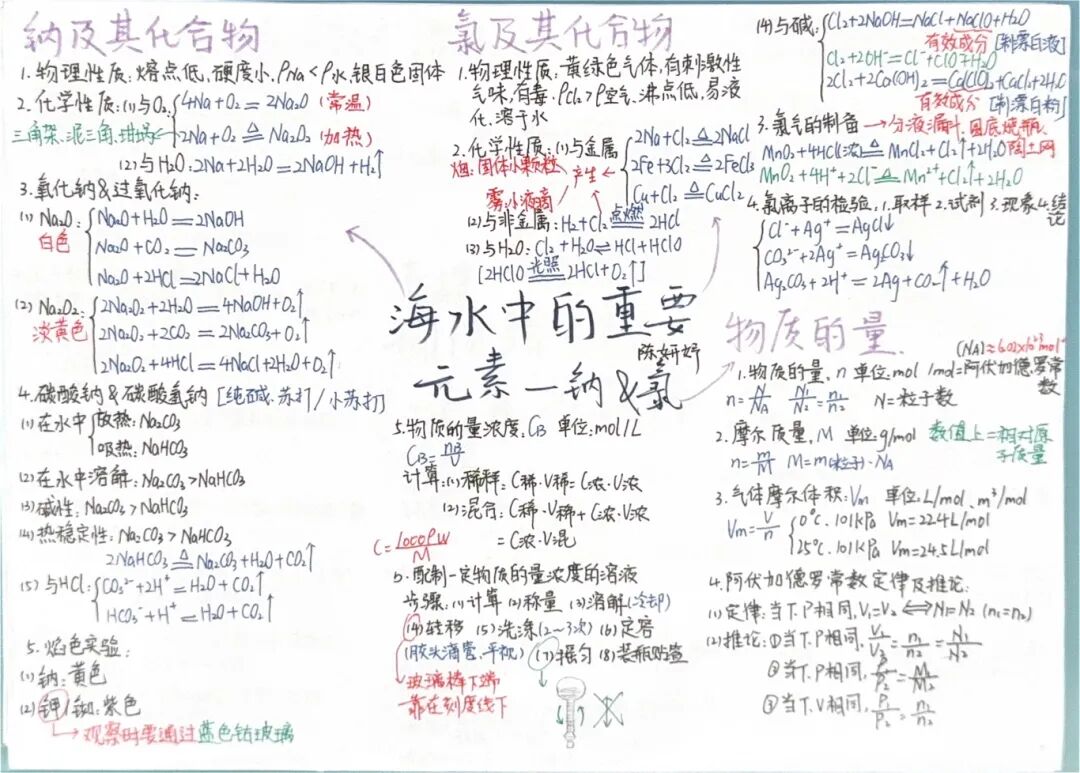 钠及其化合物
1.物理性质:熔点低,硬度小,ρNa<ρ水,银白色固体
2.化学性质:(1)与O₂:
4Na+O₂=2Na₂O (常温)
2Na+O₂≜Na₂O₂ (加热)
三角架、泥三角、坩埚
(2)与H₂O:2Na+2H₂O=2NaOH+H₂↑
3.氧化钠&过氧化钠:
(1)Na₂O:
白色
Na₂O+H₂O=2NaOH
Na₂O+CO₂=Na₂CO₃
Na₂O+2HCl=2NaCl+H₂O
(2)Na₂O₂:
淡黄色
2Na₂O₂+2H₂O=4NaOH+O₂↑
2Na₂O₂+2CO₂=2Na₂CO₃+O₂↑
2Na₂O₂+4HCl=4NaCl+2H₂O+O₂↑
4.碳酸钠&碳酸氢钠[纯碱.苏打/小苏打]
(1)在水中
放热:Na₂CO₃
吸热:NaHCO₃
(2)在水中溶解:Na₂CO₃>NaHCO₃
(3)碱性:Na₂CO₃>NaHCO₃
(4)热稳定性:Na₂CO₃>NaHCO₃
2NaHCO₃≜Na₂CO₃+H₂O+CO₂↑
(5)与HCl:
CO₃²⁻+2H⁺=H₂O+CO₂↑
HCO₃⁻+H⁺=H₂O+CO₂↑
5.焰色实验:
(1)钠:黄色
(2)钾/铷:紫色
→观察时要通过蓝色钴玻璃
氯及其化合物
1.物理性质:黄绿色气体,有刺激性
气味,有毒.ρCl₂>ρ空气.沸点低,易液
化.溶于水
2.化学性质:(1)与金属
2Na+Cl₂≜2NaCl
2Fe+3Cl₂≜2FeCl₃
Cu+Cl₂≜CuCl₂
烟:固体小颗粒
雾:小液滴
产生
(2)与非金属:H₂+Cl₂ 点燃 2HCl
(3)与H₂O:Cl₂+H₂O⇌HCl+HClO
[2HClO 光照 2HCl+O₂↑]
(4)与碱:
Cl₂+2NaOH=NaCl+NaClO+H₂O
有效成分[制漂白液]
Cl₂+2OH⁻=Cl⁻+ClO⁻+H₂O
2Cl₂+2Ca(OH)₂=Ca(ClO)₂+CaCl₂+2H₂O
有效成分[制漂白粉]
3.氯气的制备→分液漏斗.圆底烧瓶.
陶土网
MnO₂+4HCl(浓)≜MnCl₂+Cl₂↑+2H₂O
MnO₂+4H⁺+2Cl⁻≜Mn²⁺+Cl₂↑+2H₂O
4.氯离子的检验,1.取样2.试剂3.现象4.结论
Cl⁻+Ag⁺=AgCl↓
CO₃²⁻+2Ag⁺=Ag₂CO₃↓
Ag₂CO₃+2H⁺=2Ag+CO₂↑+H₂O
海水中的重要
元素—钠&氯
陈妍妤
物质的量.
(NA)≈6.02×10²³mol⁻¹
1.物质的量,n 单位:mol 1mol=阿伏加德罗常数
n=N/NA N₁/N₂=n₁/n₂ N=粒子数
2.摩尔质量,M 单位:g/mol 数值上=相对原子质量
n=m/M M=m(粒子)·NA
3.气体摩尔体积:Vm 单位:L/mol、m³/mol
Vm=V/n
0℃.101kPa Vm=22.4L/mol
25℃.101kPa Vm=24.5L/mol
4.阿伏加德罗常数定律及推论:
(1)定律:当T.P相同,V₁=V₂⟺N₁=N₂(n₁=n₂)
(2)推论:①当T.P相同,V₁/V₂=n₁/n₂=N₁/N₂
②当T.P相同,ρ₁/ρ₂=M₁/M₂
③当T.V相同,P₁/P₂=n₁/n₂
5.物质的量浓度,CB 单位:mol/L
CB=nB/V
计算:(1)稀释:C稀·V稀=C浓·V浓
(2)混合:C稀·V稀+C浓·V浓
=C浓·V混
C=1000ρW/M
5.配制一定物质的量浓度的溶液
步骤:(1)计算(2)称量(3)溶解(冷却)
(4)转移(5)洗涤(2~3次)(6)定容
(胶头滴管.平视)
(7)摇匀(8)装瓶贴签
玻璃棒下端
靠在刻度线下